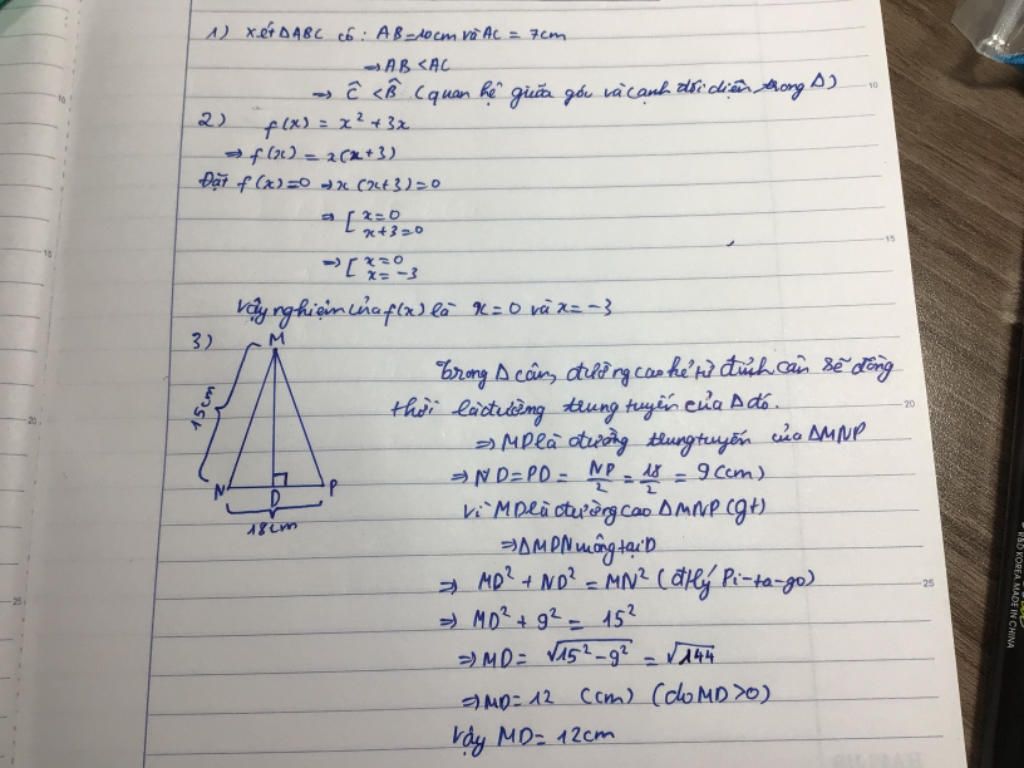 1) Xét ΔABC có: AB=10cm và AC = 7cm
⇒ AB < AC
⇒ Ĉ < B̂ (quan hệ giữa góc và cạnh đối diện trong Δ)
2) f(x) = x² + 3x
⇒ f(x) = x(x+3)
Đặt f(x)=0 ⇒ x(x+3)=0
⇒ [ x=0
x+3=0
⇒ [ x=0
x=-3
Vậy nghiệm của f(x) là x=0 và x=-3
3)
M
15cm
N D P
18cm
Trong Δ cân, đường cao kẻ từ đỉnh cân sẽ đồng
thời là đường trung tuyến của Δ đó.
⇒ MD là đường trung tuyến của ΔMNP
⇒ ND=PD= NP/2 = 18/2 = 9 (cm)
Vì MD là đường cao ΔMNP (gt)
⇒ ΔMDN vuông tại D
⇒ MD² + ND² = MN² (đ/lý Pi-ta-go)
⇒ MD² + 9² = 15²
⇒ MD = √15²-9² = √144
⇒ MD = 12 (cm) (do MD>0)
Vậy MD = 12cm
10
15
20
25
10
15
20
25
KOREA MADE IN CHINA